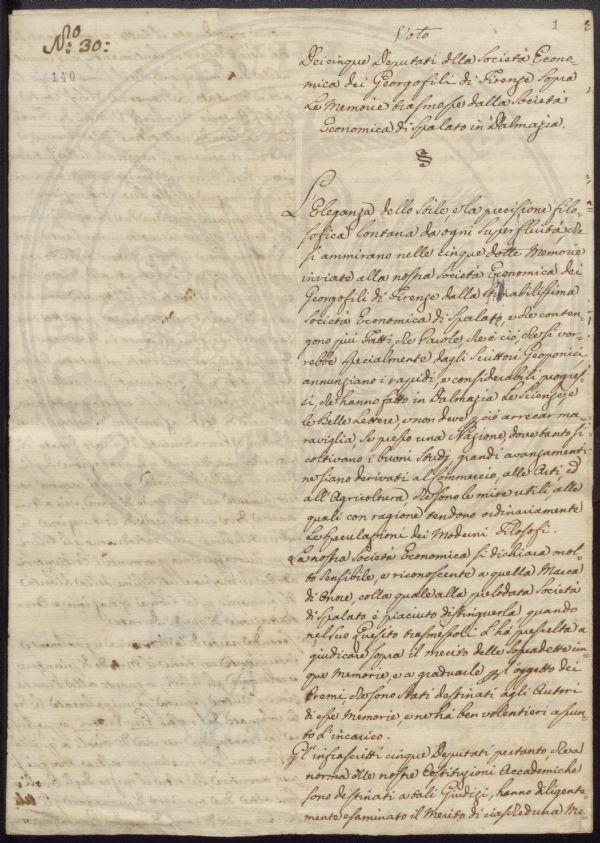 N.o 30:
140
1
Voto
Dei cinque Deputati dlla Società Econo-
mica dei Georgofili di Firenze sopra
Le Memorie trasmesse dalla Società
Economica di Spalato in Dalmazia.
§
L'Eleganza dello stile, e la precisione filo-
sofica lontana da ogni superfluità, che
si ammirano nelle cinque dotte Memorie
inviate alla nostra Società Economica dei
Georgofili di Firenze dalla stimabilissima
Società Economica di Spalato, e che conten-
gono più Fatti, che Parole, che è ciò, che si vor-
rebbe specialmente dagli Scrittori Geoponici
annunziano i rapidi, e considerabili progres-
si, che hanno fatto in Dalmazia Le Scienze, e
le Belle Lettere, e non deve p ciò arrecar ma-
raviglia, se presso una Nazione, dove tanto si
coltivano i buoni studj, grandi avanzamenti
ne siano derivati al Commercio, alle Arti, ed
all'Agricoltura che sono le mire utili, alle
quali con ragione tendono ordinariamente
Le speculazioni dei Moderni Filosofi.
La nostra Società Economica si dichiara mol-
to sensibile, e riconoscente a quella Marca
di Onore, colla quale alla prelodata Società
di Spalato è piaciuto distinguerla, quando
nel suo Quesito trasmessoli L'hà prescelta a
giudicare sopra il merito delle sopradette cin-
que Memorie, e a graduarle p l'oggetto dei
Premj, che sono stati destinati agli Autori
di esse Memorie, e ne hà ben volentieri assun-
to L'incarico.
Gl'infrascritti cinque Deputati pertanto, che a
norma dlle nostre Costituzioni Accademiche
sono destinati a tali Giudizj, hanno diligente
mente esaminato il Merito di ciascheduna Me